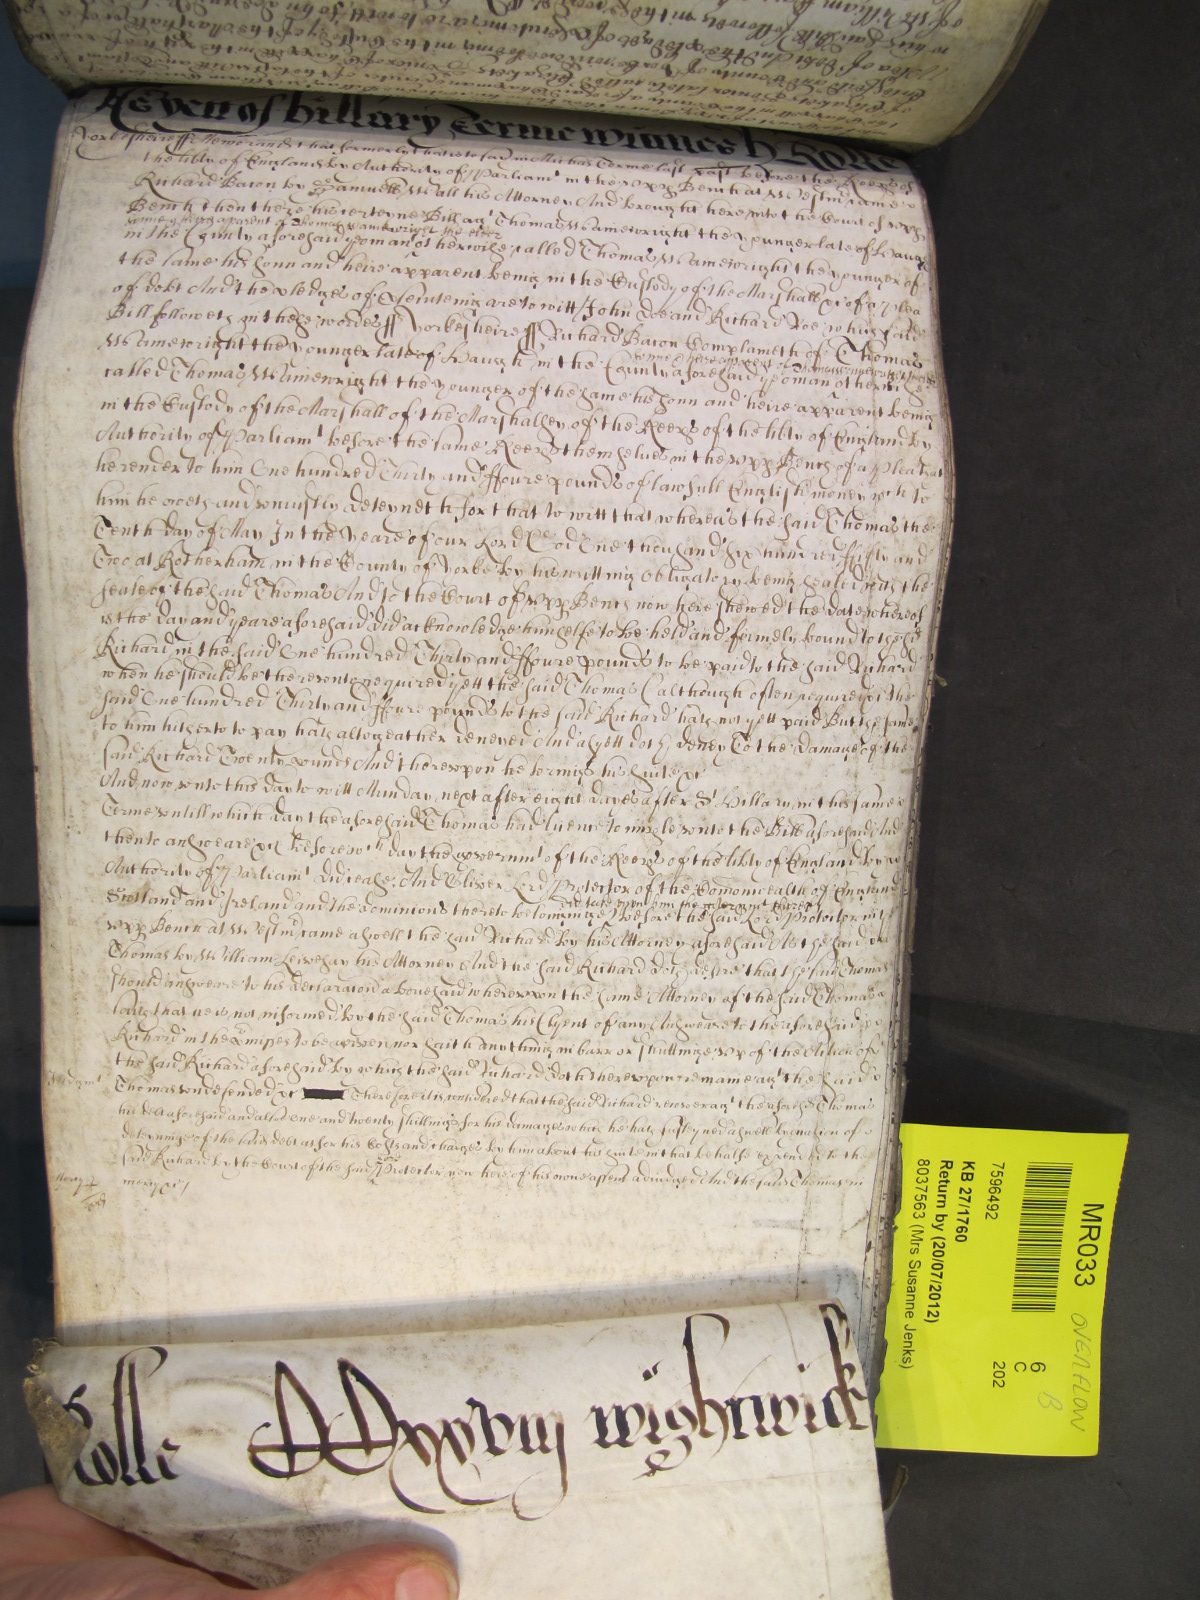 As yen of hillary Terme wittnes H Rolle
Yorkesheire ss Memorand that formerly that is to say in Michas Terme last past before the Keeps of
the libty of England by Authority of Parliam^t in the Upp Bench at Westm came
Richard Bacon by Samuell Wall his Attorney And brought here into the Court of Upp
Bench then there his certeyne Bill ag^t Thomas Wainewright the younger late of Haugh
sonne & heire aparent of Thomas wainewright the elder
in the County aforesaid yeoman otherwise called Thomas Wainewright the younger of
the same his sonn and heire apparent being in the Custody of the Marshall &c of a plea
of debt And the pledges of prosecuteing are to witt John Doe and Richard Roe which said
Bill followeth in these wordes ss Yorkesheire ss Richard Bacon Complaineth of Thomas
sonne & heire apparent of Thomas wainewright the elder
Wainewright the younger late of Haugh in the County aforesaid yeoman otherwise
called Thomas Wainewright the younger of the same his sonn and heire apparent being
in the Custody of the Marshall of the Marshalsey of the Keeps of the libty of England by
Authority of Parliam^t before the same Keeps themselves in the Upp Bench of a plea that
he render to him One hundred Thirty and ffoure pounds of lawfull English money w^ch to
him he oweth and uniustly deteyneth for that to witt that whereas the said Thomas the
Tenth day of May In the yeare of our Lord God One thousand six hundred fifty and
Two at Rotherham in the County of Yorke by his writting obligatory being sealed with the
seale of the said Thomas And to the Court of Upp Bench now here shewed the date whereof
is the day and yeare aforesaid did acknowledge himselfe to be held and firmely bound to the sd
Richard in the said One hundred Thirty and ffoure pounds to be paid to the said Richard
when he should be thereunto required yett the said Thomas (although often required) the
said One hundred Thirty and ffoure pounds to the said Richard hath not yett paid But the same
to him hitherto to pay hath altogeather denyed And as yett doth deney To the damage of the
said Richard Twenty pounds And thereupon he brings his suite &c
And now unto this day to witt Munday next after eight dayes after S^t Hillary in this same
Terme untill which day the aforesaid Thomas had licence to imparle unto the Bill aforesaid And
then to answeare &c Before w^ch day the governm^t of the Keeps of the libty of England by
Authority of Parliam^t did cease And Oliver Lord Protector of the Comonwealth of England
did take upon him the governm^t thereof
Scotland and Ireland and the dominions thereto belonginge before the said Lord Protector in the
Upp Bench at Westm came aswell the said Richard by his Attorney aforesaid As the said
Thomas by William his Attorney And the said Richard doth desire that the said Thomas
should answeare to his declaracon abovesaid whereupon the same Attorney of the said Thomas
saith that he is not informed by the said Thomas his Clyent of any Answeare to the aforesaid
Richard in the p^rmises to be given nor saith any thing in barr or shuttinge up of the Action of
the said Richard aforesaid by which the said Richard doth thereupon remaine ag^t the said
Thomas undefended &c Therefore it is considered that the said Richard recover ag^t the aforesd Thomas
his debt aforesaid and also one and twenty shillings for his damages which he hath susteyned aswell by occasion of
deteyninge of the said debt as for his Costs and charges by him about his suite in that behalfe expended to the
said Richard by the Court of the said Protector now here of his owne assent adiudged And the said Thomas in
mercy &c
Rolle
wightwick
MR033
OVERFLOW
B
6
C
202
7596492
KB 27/1760
Return by (20/07/2012)
8037563 (Mrs Susanne Jenks)